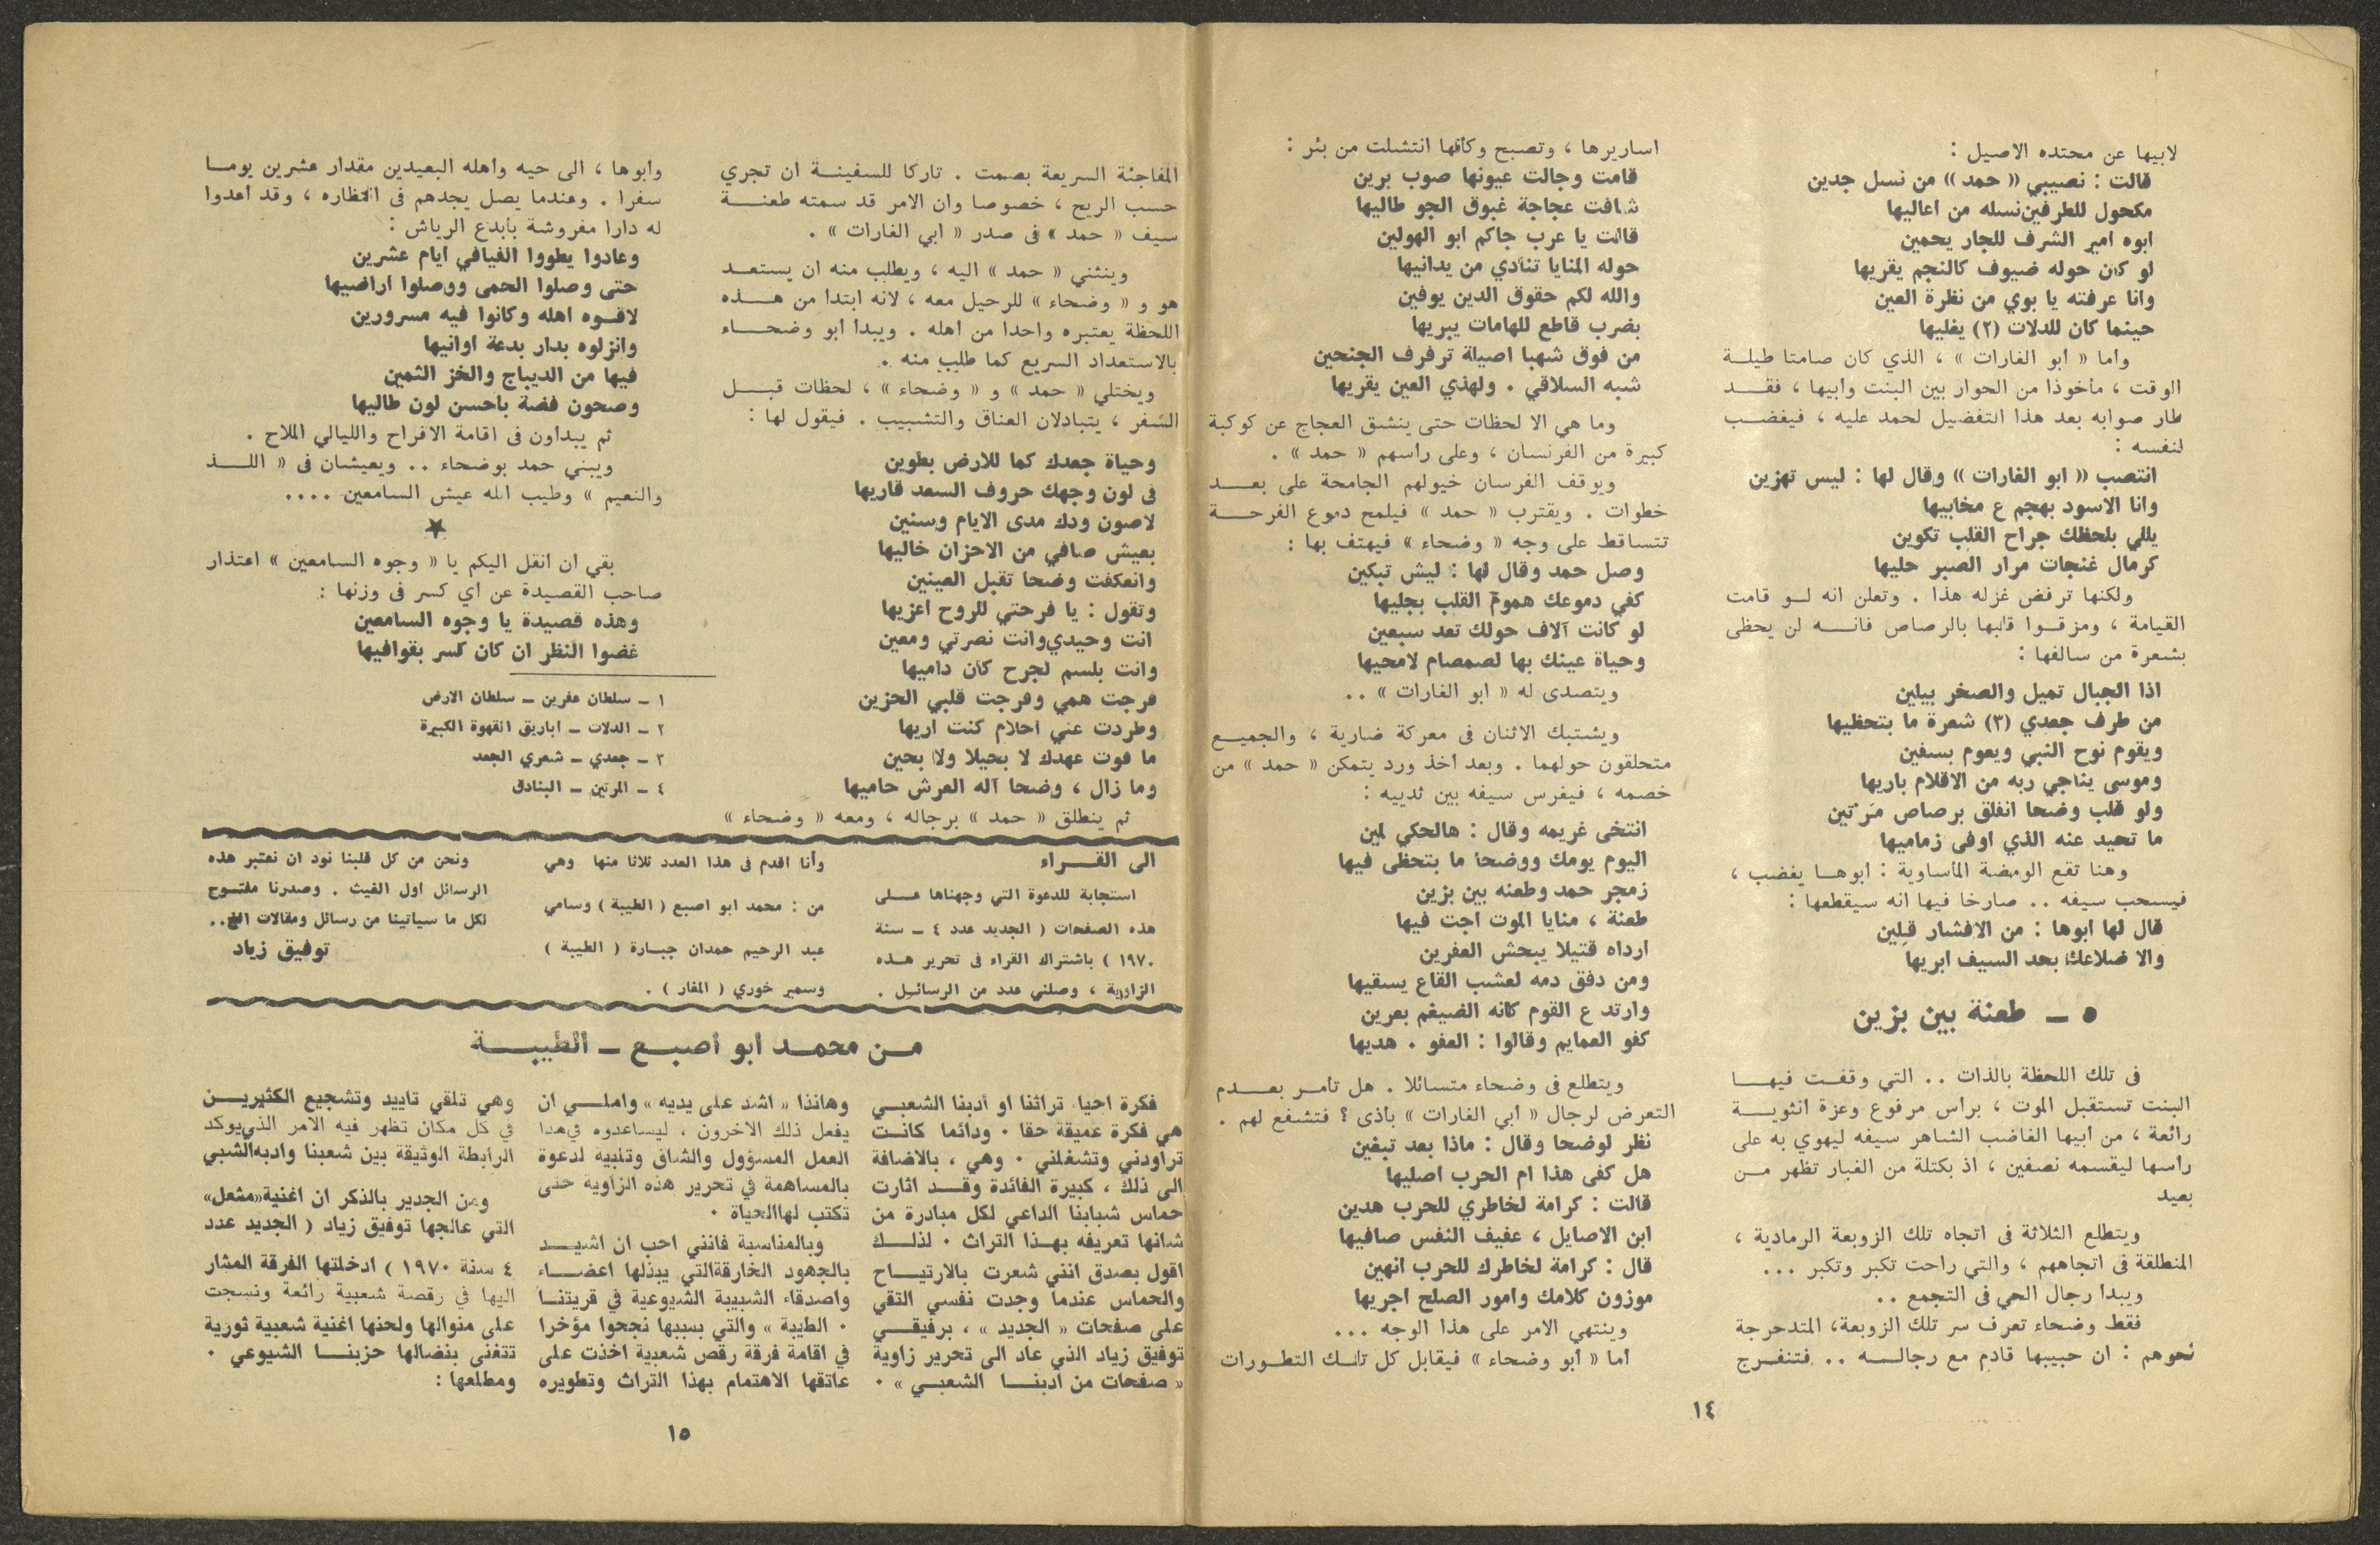 لابيها عن محتده الاصيل :
قالت : نصيبي « حمد » من نسل جدين
مكحول للطرفين نسله من اعاليها
ابوه امير الشرف للجار يحمين
لو كان حوله ضيوف كالنجم يقريها
وانا عرفته يا بوي من نظرة العين
حينما كان للدلات (٢) يغليها
واما « ابو الغارات » ، الذي كان صامتا طيلة
الوقت ، مأخوذا من الحوار بين البنت وابيها ، فقد
طار صوابه بعد هذا التفضيل لحمد عليه ، فيغضب
لنفسه :
انتصب « ابو الغارات » وقال لها : ليس تهزين
وانا الاسود بهجم ع مخابيها
يللي بلحظك جراح القلب تكوين
كرمال غنجات مرار الصبر حليها
ولكنها ترفض غزله هذا . وتعلن انه لو قامت
القيامة ، ومزقوا قلبها بالرصاص فانه لن يحظى
بشعرة من سالفها :
اذا الجبال تميل والصخر بيلين
من طرف جعدي (٣) شعرة ما بتحظيها
ويقوم نوح النبي ويعوم بسفين
وموسى يناجي ربه من الاقلام باريها
ولو قلب وضحا انفلق برصاص مَرْتين
ما تحيد عنه الذي اوفى زماميها
وهنا تقع الومضة المأساوية : ابوها يغضب ،
فيسحب سيفه .. صارخا فيها انه سيقطعها :
قال لها ابوها : من الافشار قِلين
والا ضلاعك بحد السيف ابريها
٥ ـ طعنة بين بزين
فى تلك اللحظة بالذات .. التي وقفت فيها
البنت تستقبل الموت ، براس مرفوع وعزة انثوية
رائعة ، من ابيها الغاضب الشاهر سيفه ليهوي به على
رأسها ليقسمه نصفين ، اذ بكتلة من الغبار تظهر من
بعيد
ويتطلع الثلاثة فى اتجاه تلك الزوبعة الرمادية ،
المنطلقة فى اتجاههم ، والتي راحت تكبر وتكبر ...
ويبدا رجال الحي فى التجمع ..
فقط وضحاء تعرف سر تلك الزوبعة، المتدحرجة
نحوهم : ان حبيبها قادم مع رجاله .. فتنفرج
اساريرها ، وتصبح وكأنها انتشلت من بئر :
قامت وجالت عيونها صوب برين
شافت عجاجة غبوق الجو طاليها
قالت يا عرب جاكم ابو الهولين
حوله المنايا تنادي من يدانيها
والله لكم حقوق الدين يوفين
بضرب قاطع للهامات يبريها
من فوق شهبا اصيلة ترفرف الجنحين
شبه السلاقي . ولهذي العين يقريها
وما هي الا لحظات حتى ينشق العجاج عن كوكبة
كبيرة من الفرنسان ، وعلى رأسهم « حمد » .
ويوقف الفرسان خيولهم الجامحة على بعد
خطوات . ويقترب « حمد » فيلمح دموع الفرحة
تتساقط على وجه « وضحاء » فيهتف بها :
وصل حمد وقال لها : ليش تبكين
كفي دموعك هموم القلب بجليها
لو كانت آلاف حولك تعد سبعين
وحياة عينك بها لصمصام لامحيها
ويتصدى له « ابو الغارات » ..
ويشتبك الاثنان فى معركة ضارية ، والجميع
متحلقون حولهما . وبعد اخذ ورد يتمكن « حمد » من
خصمه ، فيغرس سيفه بين ثدييه :
انتخى غريمه وقال : هالحكي لمين
اليوم يومك ووضحا ما بتحظى فيها
زمجر حمد وطعنه بين بزين
طعنة ، منايا الموت اجت فيها
ارداه قتيلا يبحش العفرين
ومن دفق دمه لعشب القاع يسقيها
وارتد ع القوم كانه الضيغم بعرين
كفو العمايم وقالوا : العفو . هديها
ويتطلع فى وضحاء متسائلا . هل تأمر بعدم
التعرض لرجال « ابي الغارات » بأذى ؟ فتشفع لهم .
نظر لوضحا وقال : ماذا بعد تبغين
هل كفى هذا ام الحرب اصليها
قالت : كرامة لخاطري للحرب هدين
ابن الاصايل ، عفيف النفس صافيها
قال : كرامة لخاطرك للحرب انهين
موزون كلامك وامور الصلح اجريها
وينتهي الامر على هذا الوجه ...
اما « ابو وضحاء » فيقابل كل تلك التطورات
١٤
المفاجئة السريعة بصمت . تاركا للسفينة ان تجري
حسب الريح ، خصوصا وان الامر قد سمته طعنة
سيف « حمد » فى صدر « ابي الغارات » .
وينثني « حمد » اليه ، ويطلب منه ان يستعد
هو و « وضحاء » للرحيل معه ، لانه ابتدا من هذه
اللحظة يعتبره واحدا من اهله . ويبدا ابو وضحاء
بالاستعداد السريع كما طلب منه .
ويختلي « حمد » و « وضحاء » ، لحظات قبل
السفر ، يتبادلان العناق والتشبيب . فيقول لها :
وحياة جعدك كما للارض بطوين
فى لون وجهك حروف السعد قاريها
لاصون ودك مدى الايام وسنين
بعيش صافي من الاحزان خاليها
وانعكفت وضحا تقبل العينين
وتقول : يا فرحتي للروح اعزيها
انت وحيدي وانت نصرتي ومعين
وانت بلسم لجرح كان داميها
فرجت همي وفرجت قلبي الحزين
وطردت عني احلام كنت اريها
ما فوت عهدك لا بحيلا ولا بحين
وما زال ، وضحا آله العرش حاميها
ثم ينطلق « حمد » برجاله ، ومعه « وضحاء »
وابوها ، الى حيه واهله البعيدين مقدار عشرين يوما
سفرا . وعندما يصل يجدهم فى انتظاره ، وقد اعدوا
له دارا مفروشة بأبدع الرياش :
وعادوا يطووا الفيافي ايام عشرين
حتى وصلوا الحمى ووصلوا اراضيها
لاقوه اهله وكانوا فيه مسرورين
وانزلوه بدار بدعة اوانيها
فيها من الديباج والخز الثمين
وصحون فضة باحسن لون طاليها
ثم يبداون فى اقامة الافراح والليالي الملاح .
ويبني حمد بوضحاء .. ويعيشان فى « اللذ
والنعيم » وطيب الله عيش السامعين ....
★
بقي ان انقل اليكم يا « وجوه السامعين » اعتذار
صاحب القصيدة عن اي كسر فى وزنها :
وهذه قصيدة يا وجوه السامعين
غضوا النظر ان كان كسر بقوافيها
١ ـ سلطان عفرين ـ سلطان الارض
٢ ـ الدلات ـ اباريق القهوة الكبيرة
٣ ـ جعدي ـ شعري الجعد
٤ ـ المرتين ـ البنادق
الى القراء
استجابة للدعوة التي وجهناها على
هذه الصفحات ( الجديد عدد ٤ ـ سنة
١٩٧٠ ) باشتراك القراء فى تحرير هذه
الزاوية ، وصلني عدد من الرسائل .
وأنا اقدم فى هذا العدد ثلاثا منها وهي
من : محمد ابو اصبع ( الطيبة ) وسامي
عبد الرحيم حمدان جبارة ( الطيبة )
وسمير خوري ( المغار ) .
ونحن من كل قلبنا نود ان نعتبر هذه
الرسائل اول الغيث . وصدرنا مفتوح
لكل ما سياتينا من رسائل ومقالات الخ..
توفيق زياد
من محمد ابو اصبع ـ الطيبة
فكرة احياء تراثنا او أدبنا الشعبي
هي فكرة عميقة حقا . ودائما كانت
تراودني وتشغلني . وهي ، بالاضافة
الى ذلك ، كبيرة الفائدة وقد اثارت
حماس شبابنا الداعي لكل مبادرة من
شانها تعريفه بهذا التراث . لذلك
اقول بصدق انني شعرت بالارتياح
والحماس عندما وجدت نفسي التقي
على صفحات « الجديد » ، برفيقي
توفيق زياد الذي عاد الى تحرير زاوية
« صفحات من أدبنا الشعبي » .
وهانذا « اشد على يديه » واملي ان
يفعل ذلك الاخرون ، ليساعدوه في هذا
العمل المسؤول والشاق وتلبية لدعوة
بالمساهمة في تحرير هذه الزاوية حتى
تكتب لها الحياة .
وبالمناسبة فانني احب ان اشيد
بالجهود الخارقة التي يبذلها اعضاء
واصدقاء الشبيبة الشيوعية في قريتنا
. الطيبة » والتي بسببها نجحوا مؤخرا
في اقامة فرقة رقص شعبية اخذت على
عاتقها الاهتمام بهذا التراث وتطويره
وهي تلقي تاييد وتشجيع الكثيرين
في كل مكان تظهر فيه الامر الذي يوكد
الرابطة الوثيقة بين شعبنا وادبه الشبي
ومن الجدير بالذكر ان اغنية «مشعل»
التي عالجها توفيق زياد ( الجديد عدد
٤ سنة ١٩٧٠ ) ادخلتها الفرقة المشار
اليها في رقصة شعبية رائعة ونسجت
على منوالها ولحنها اغنية شعبية ثورية
تتغنى بنضالها حزبنا الشيوعي .
ومطلعها :
١٥